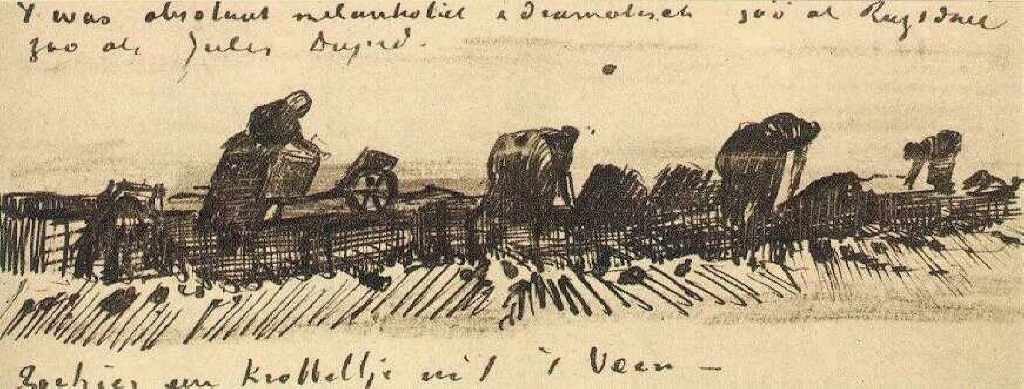 't was absoluut melankoliek & dramatisch zoo als Ruysdael
zoo als Jules Dupré.
Ziehier een krabbeltje uit 't Veen —